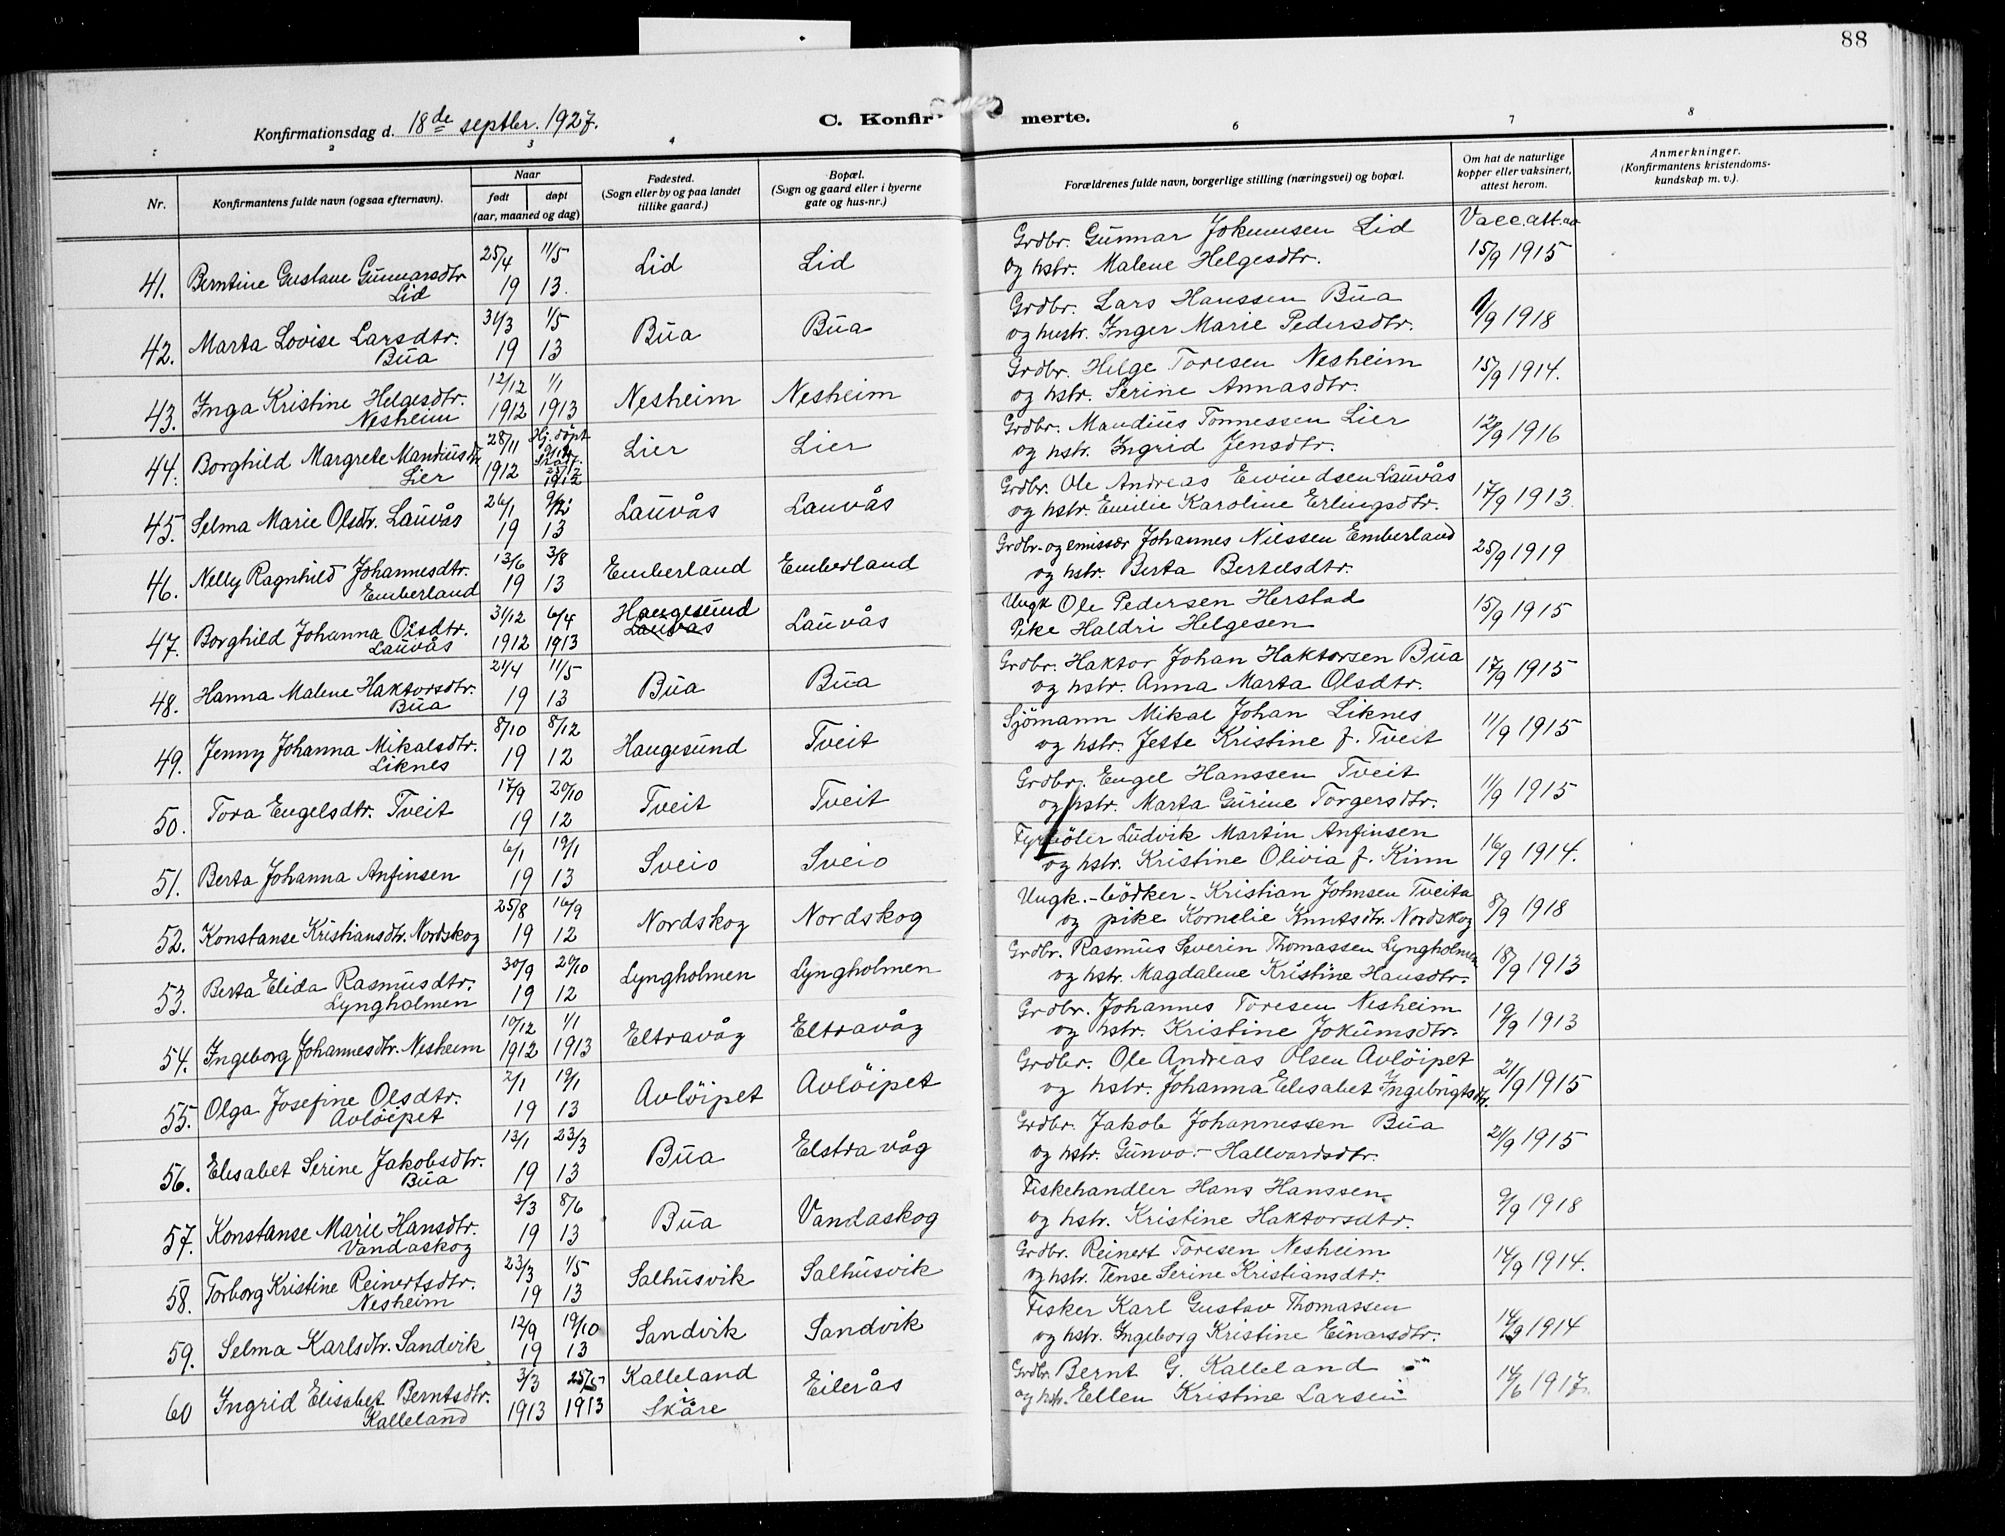 88
Konfirmationsdag d. 18de septbr. 1927.
C. Konfir merte.
1 2 3 4 6 7 8
Nr.
Konfirmantens fulde navn (ogsaa efternavn).
Naar
født døpt
(aar, maaned og dag)
Fødested.
(Sogn eller by og paa landet
tillike gaard.)
Bopæl.
(Sogn og gaard eller i byerne
gate og hus-nr.)
Forældrenes fulde navn, borgerlige stilling (næringsvei) og bopæl.
Om hat de naturlige
kopper eller vaksinert,
attest herom.
Anmerkninger.
(Konfirmantens kristendoms-
kundskap m. v.).
25/4 11/5 Grdbr. Gunnar Jokumsen Lid Vacc. att. av
41. Berntine Gustave Gunnarsdtr. Lid Lid og hstr. Malene Helgesdtr. 15/9 1915
Lid 19 13.
31/3 1/5 Grdbr. Lars Hanssen Bua
42. Marta Lovise Larsdtr. Bua Bua og hustr. Inger Marie Pedersdtr. 1/9 1918
Bua 19 13
12/12 1/1 Grdbr. Helge Toresen Nesheim
43. Inga Kristine Helgesdtr. Nesheim Nesheim og hstr. Serine Annasdtr. 15/9 1914.
Nesheim 1912 1913
28/11 Hj. døpt Grdbr. Mandius Tønnessen Lier
44. Borghild Margrete Mandiusdtr. Lier Lier og hstr. Ingrid Jensdtr. 12/9 1916
Lier 1912 25/12 1912
26/1 Grdbr. Ole Andreas Eivindsen Lauvås
45. Selma Marie Olsdtr. Lauvås Lauvås Lauvås og hstr. Emilie Karoline Erlingsdtr. 17/9 1913
19 13
13/6 3/8 Grdbr. og emissær Johannes Nilssen Emberland
46. Nelly Ragnhild Johannesdtr. Emberland Emberland og hstr. Berta Bertelsdtr. 25/9 1919
Emberland 19 13
31/12 6/4 Haugesund Ungk Ole Pedersen Herstad
47. Borghild Johanna Olsdtr. Lauvås Lauvås Pike Haldri Helgesen 15/9 1915
Lauvås 1912 1913
21/4 11/5 Grdbr. Haktor Johan Haktorsen Bua
48. Hanna Malene Haktorsdtr. Bua Bua og hstr. Anna Marta Olsdtr. 17/9 1915
Bua 19 13
8/10 8/12 Sjömann Mikal Johan Liknes
49. Jenny Johanna Mikalsdtr. Haugesund Tveit og hstr. Jette Kristine f. Tveit 11/9 1915
Liknes 19 12
17/9 20/10 Grdbr. Engel Hanssen Tveit
50. Tora Engelsdtr. Tveit Tveit Tveit og hstr. Marta Gurine Torgersdtr. 11/9 1915
19 12
6/1 19/1 Fyrbøter Ludvik Martin Anfinsen
51. Berta Johanna Anfinsen Sveio Sveio og hstr. Kristine Olivia f. Kinn 16/9 1914.
19 13
25/8 16/9 Ungk. - bödker - Kristian Johnsen Tveita
52. Konstanse Kristiansdtr. Nordskog Nordskog Nordskog og pike Kornelie Knutsdtr. Nordskog 8/9 1918
19 12
30/9 20/10 Grdbr. Rasmus Severin Thomassen Lyngholmen
53. Berta Elida Rasmusdtr. Lyngholmen Lyngholmen og hstr. Magdalene Kristine Hansdtr. 18/9 1913
Lyngholmen 19 12
10/12 1/1 Grdbr. Johannes Toresen Nesheim
54. Ingeborg Johannesdtr. Nesheim Eltravåg Eltravåg og hstr. Kristine Jokumsdtr. 19/9 1913
1912 1913
2/1 19/1 Grdbr. Ole Andreas Olsen Avlöipet
55. Olga Josefine Olsdtr. Avlöipet Avlöipet og hstr. Johanna Elisabet Ingebrigtsdtr. 21/9 1915
Avlöipet 19 13
13/1 23/3 Grdbr. Jakob Johannessen Bua
56. Elisabet Serine Jakobsdtr. Bua Elstravåg og hstr. Gunvor Hallvardsdtr. 21/9 1915
Bua 19 13
3/3 8/6 Fiskehandler Hans Hanssen
57. Konstanse Marie Hansdtr. Bua Vandaskog og hstr. Kristine Haktorsdtr. 9/9 1918
Vandaskog 19 13
23/3 1/5 Grdbr. Reinert Toresen Nesheim
58. Torborg Kristine Reinertsdtr. Salhusvik Salhusvik og hstr. Tense Serine Kristiansdtr. 14/9 1914.
Nesheim 19 13
12/9 19/10 Fisker Karl Gustav Thomassen
59. Selma Karlsdtr. Sandvik Sandvik Sandvik og hstr. Ingeborg Kristine Einarsdtr. 14/9 1914
19 13
3/3 25/5 Kalleland Grdbr. Bernt G. Kalleland
60 Ingrid Elisabet Berntsdtr. Skåre Eilerås og hstr. Ellen Kristine Larsen 14/6 1917.
Kalleland 1913 1913